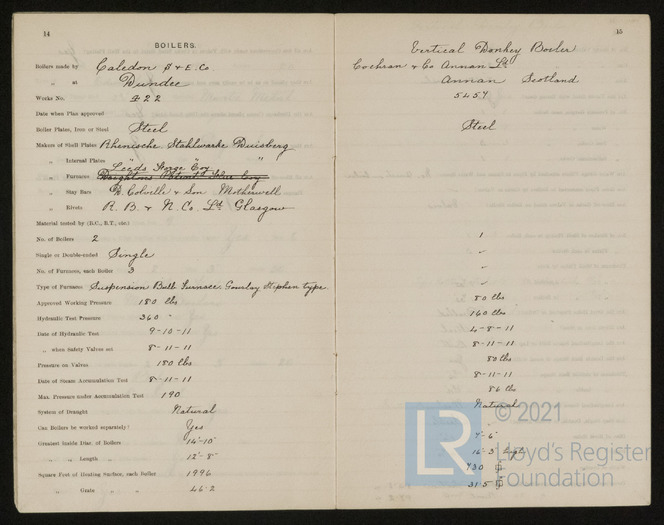 14
BOILERS.
Boilers made by Caledon S & E. Co.
„ at Dundee
Works No. 222
Date when Plan approved
Boiler Plates, Iron or Steel Steel
Makers of Shell Plates Rhenische Stahlwarke Duisberg
„ Internal Plates " " "
Leeds Forge Coy
„ Furnaces Deightons Patent Flue Coy
„ Stay Bars D. Colville & Son Motherwell
„ Rivets R. B. & N. Co. Ld Glasgow
Material tested by (B.C., B.T., etc.)
No. of Boilers 2
Single or Double-ended Single
No. of Furnaces, each Boiler 3
Type of Furnaces Suspension Bulb Furnace. Gourlay Stephen type
Approved Working Pressure 180 lbs
Hydraulic Test Pressure 360 "
Date of Hydraulic Test 9-10-11
„ when Safety Valves set 8-11-11
Pressure on Valves 180 lbs
Date of Steam Accumulation Test 8-11-11
Max. Pressure under Accumulation Test 190
System of Draught Natural
Can Boilers be worked separately? Yes
Greatest Inside Diar. of Boilers 14'-10"
„ „ Length 12'-8"
Square Feet of Heating Surface, each Boiler 1996
„ Grate „ „ 46.2
15
Vertical Donkey Boiler
Cochran & Co Annan Ld
Annan Scotland
5457
Steel
1
✓
✓
✓
80 lbs
160 lbs
4-8-11
8-11-11
80 lbs
8-11-11
86 lbs
Natural
7'-6"
16'-3" high
430
31.5
LR
© 2021
Lloyd's Register
Foundation